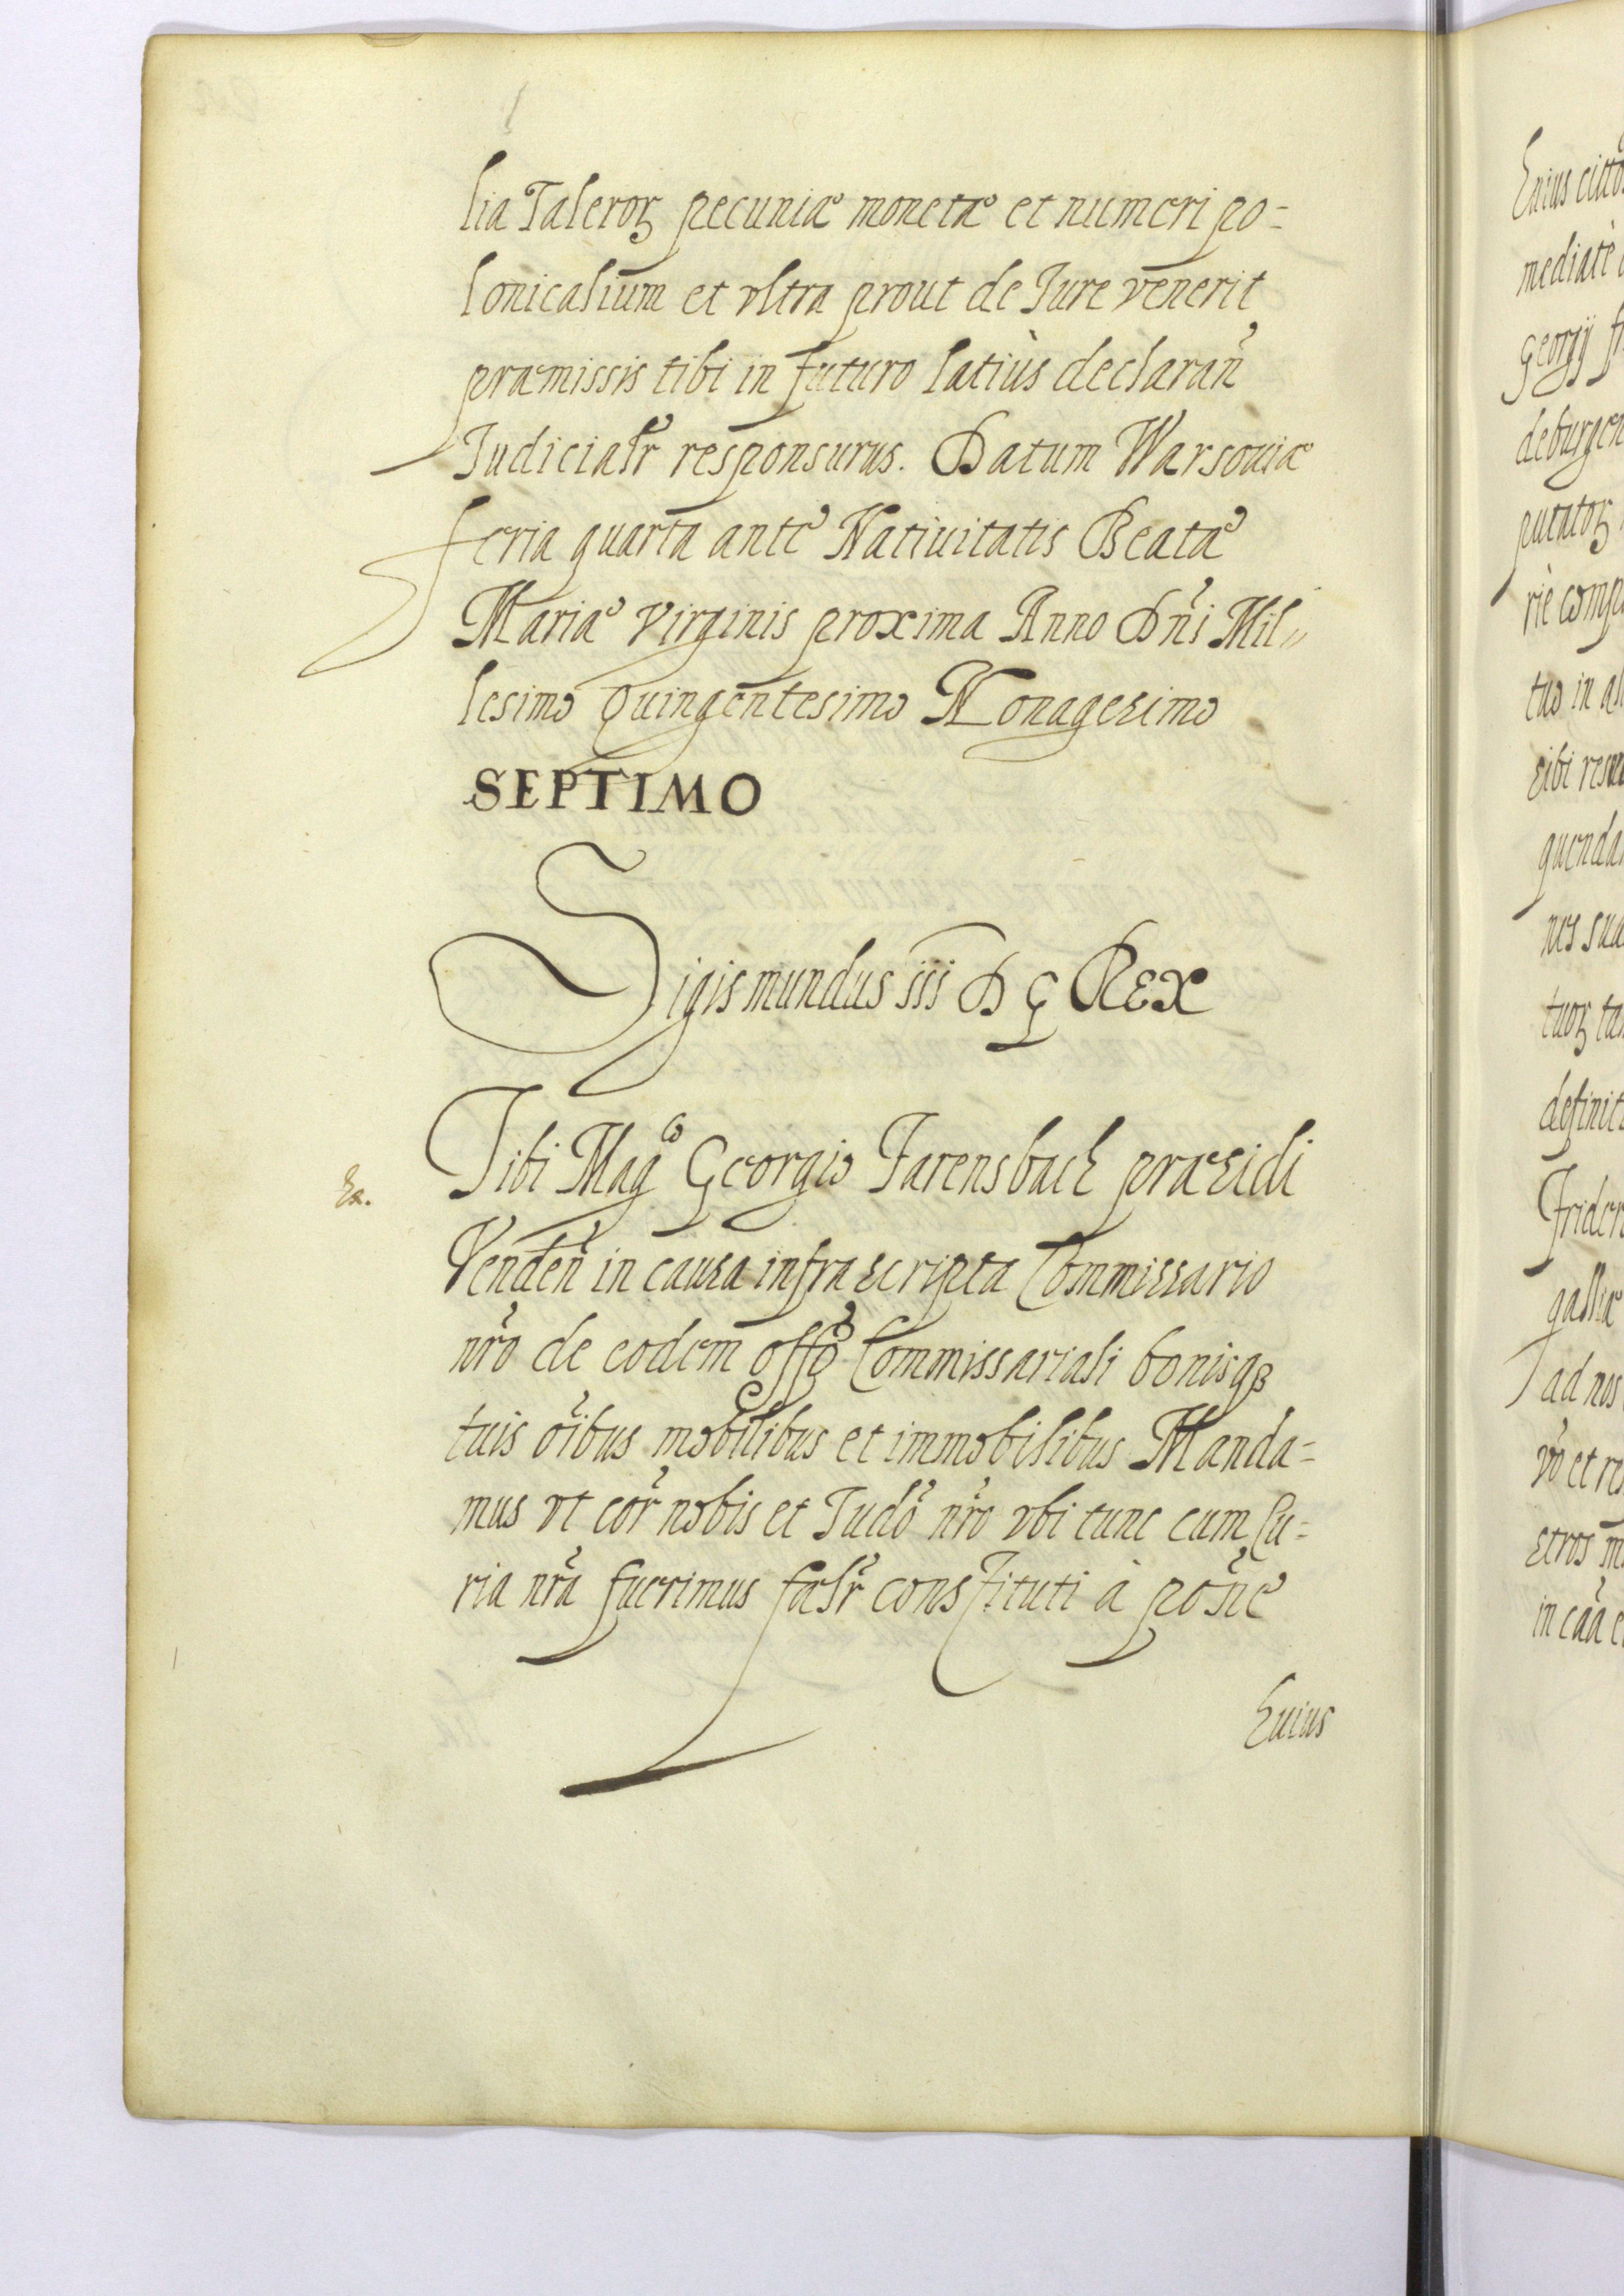 lia Taleroꝝ pecuniæ monetæ et numeri po=
lonicalium et vltra prout de Jure venerit
præmissis tibi in futuro latiùs declarañ
Judicialr̃ responsurus. Datum Warsouiæ
feria quarta ante Natiuitatis Beatæ
Mariæ Virginis proxima Anno Dñi Mil„
lesimo Quingentesimo Nonagesimo
SEPTIMO
Sigismundus iii D G REX
Ex.
Tibi Magᶜᵒ Georgio Farensbach præsidi
Vendeñ in causa infrascripta Commissario
nr̃o de eodem offõ Commissariali bonisqꝫ
tuis oĩbus mobilibus et immobilibus Manda=
mus vt cor̃ nobis et Judõ nr̃o vbi tunc cum Cu=
ria nr̃a fuerimus falr̃ constituti à põne
Huius
Huius
mediatè
Georgij
deburgen
putatoꝝ
riè comp
tuo in al
sibi res
quenda
nes sua
tuoꝝ ta
definit
Frider
galliæ
ad nos
vo et re
stros m
in cãa e